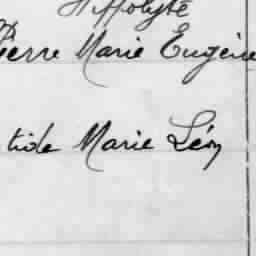 Hippolyte
Pierre Marie Eugène
tide Marie Léon